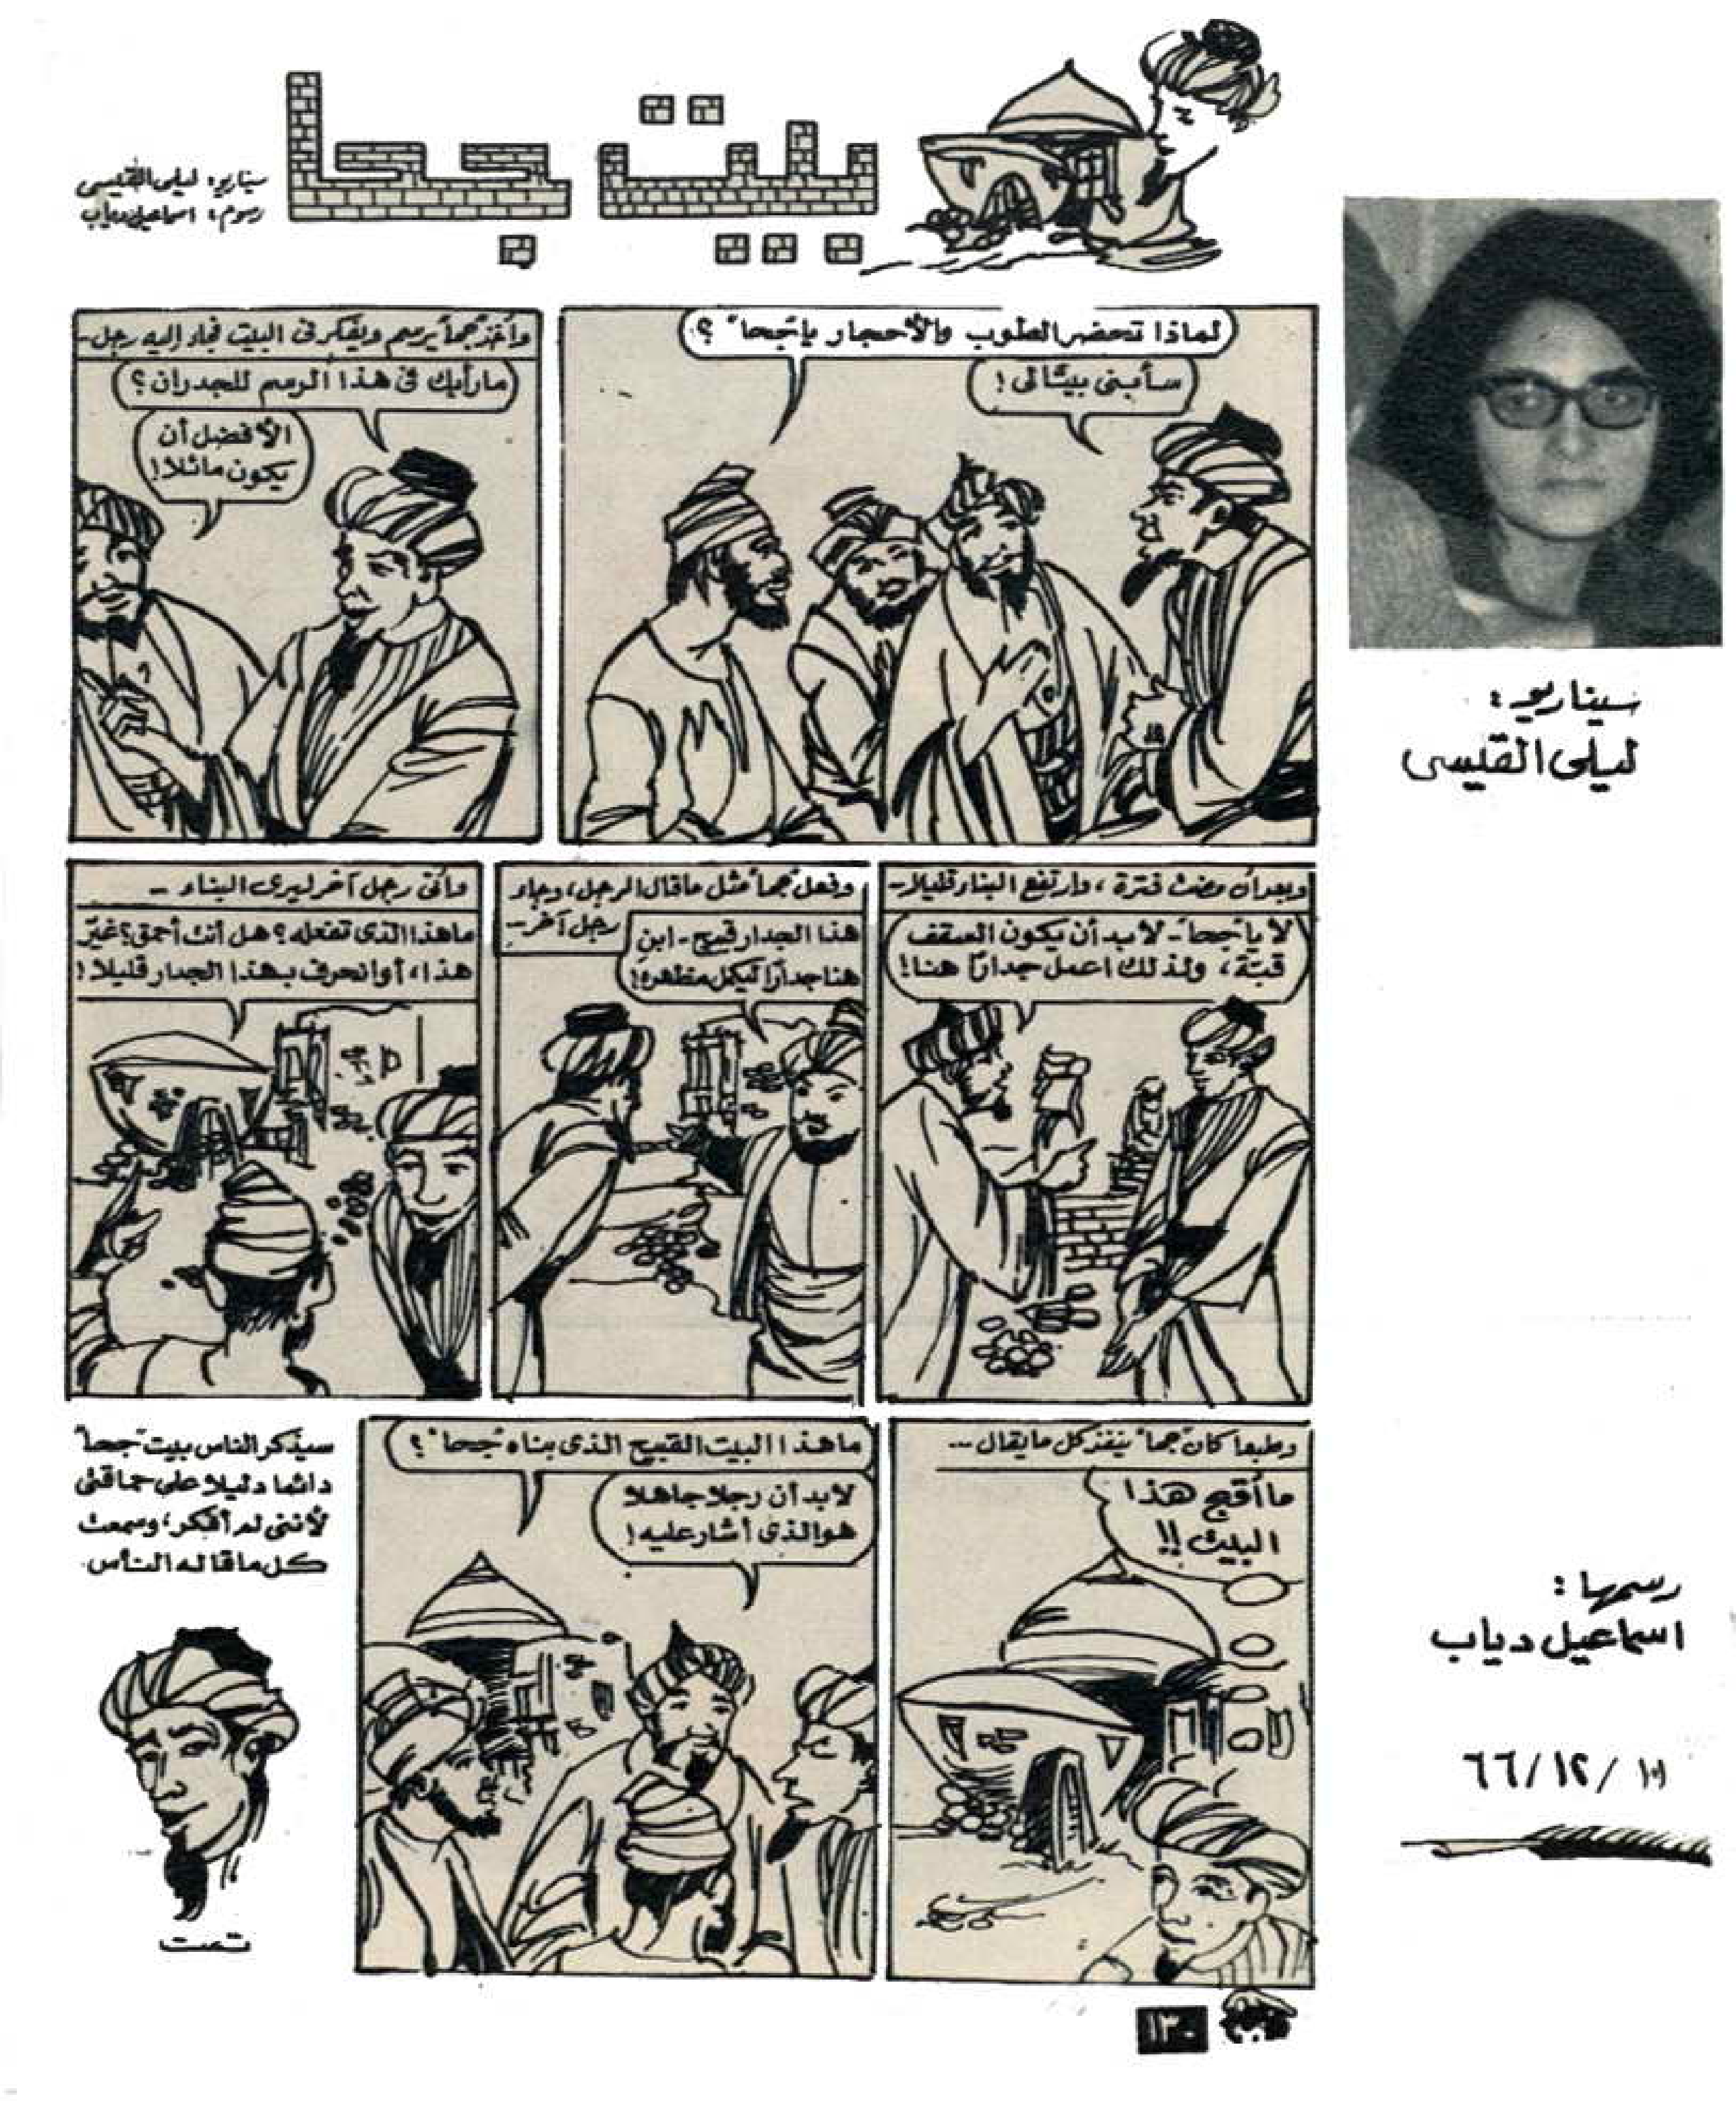 بيت جحا
سيناريو: ليلى القليسى
رسوم: اسماعيل دياب
لماذا تحضر الطوب والأحجار يا "جحا" ؟
سأبنى بيتًا لى !
وأخذ "جحا" يرسم ويفكر فى البيت فجاء إليه رجل -
ما رأيك فى هذا الرسم للجدران ؟
الأفضل أن
يكون مائلا !
سيناريو :
ليلى القليسى
وبعد أن مضت فترة ، وارتفع البناء قليلا -
لا يا "جحا" - لابد أن يكون السقف
قبّة ، ولذلك اعمل جدارًا هنا !
وفعل "جحا" مثل ما قال الرجل ، وجاء
رجل آخر -
هذا الجدار قبيح - ابن
هنا جدارًا ليكمل مظهره !
وأتى رجل آخر ليرى البناء -
ما هذا الذى تفعله ؟ هل أنت أحمق ؟ غيّر
هذا ، أو انحرف بهذا الجدار قليلا !
وطبعا كان "جحا" ينفذ كل ما يقال --
ما أقبح هذا
البيت !!
ما هذا البيت القبيح الذى بناه "جحا" ؟
لابد أن رجلا جاهلا
هو الذى أشار عليه !
سيذكر الناس بيت "جحا"
دائما دليلا على حماقتى
لأننى لم أفكر ، وسمعت
كل ما قاله الناس .
تمت
رسمها :
اسماعيل دياب
٦٦/١٢/
١٣٠